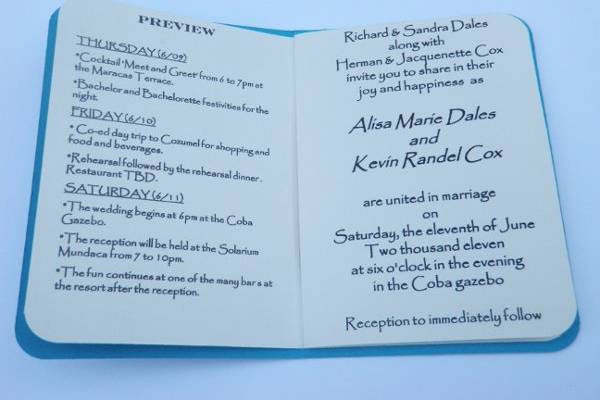 PREVIEW
THURSDAY (6/09)
•Cocktail 'Meet and Greet' from 6 to 7pm at
the Maracas Terrace.
•Bachelor and Bachelorette festivities for the
night.
FRIDAY (6/10)
• Co-ed day trip to Cozumel for shopping and
food and beverages.
•Rehearsal followed by the rehearsal dinner.
Restaurant TBD.
SATURDAY (6/11)
•The wedding begins at 6pm at the Coba
Gazebo.
•The reception will be held at the Solarium
Mundaca from 7 to 10pm.
•The fun continues at one of the many bars at
the resort after the reception.
Richard & Sandra Dales
along with
Herman & Jacquenette Cox
invite you to share in their
joy and happiness as
Alisa Marie Dales
and
Kevin Randel Cox
are united in marriage
on
Saturday, the eleventh of June
Two thousand eleven
at six o'clock in the evening
in the Coba gazebo
Reception to immediately follow